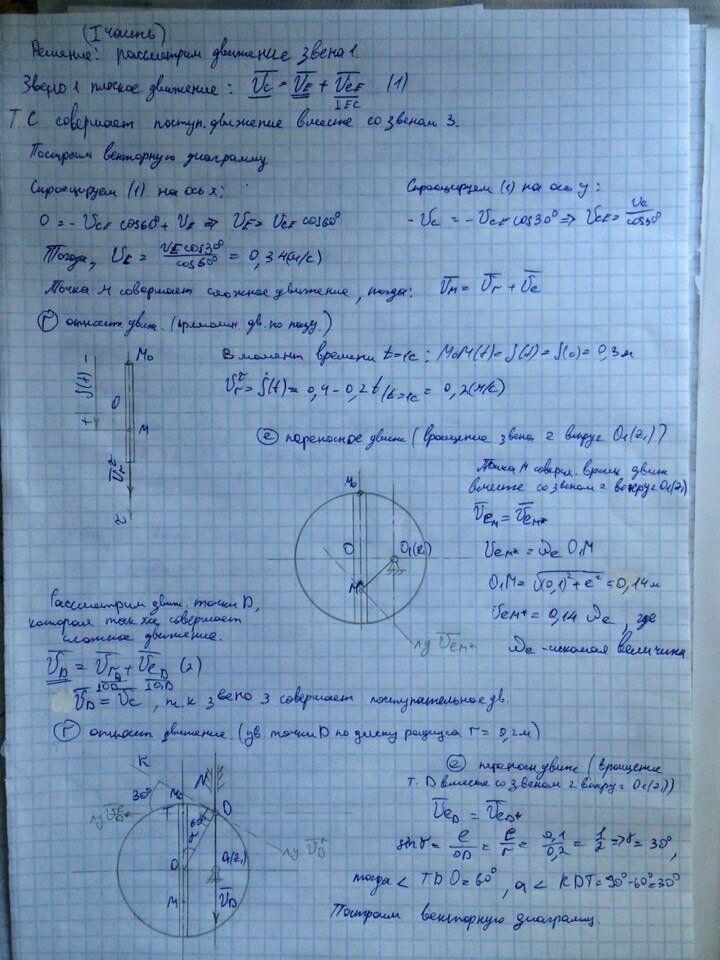 (I часть)
Решение: рассмотрим движение звена 1.
Звено 1 плоское движение: V̅c = V̅E + V̅CE (1)
⊥EC
Т. С совершает поступ. движение вместе со звеном 3.
Построим векторную диаграмму
Спроецируем (1) на ось x:
0 = - VCE cos60° + VE ⇒ VE = VCE cos60°
Спроецируем (1) на ось y:
- Vc = - VCE cos30° ⇒ VCE = Vc / cos30°
Тогда, VC = VE cos30° / cos60° = 0,34 (м/с)
Точка М совершает сложное движение, тогда: V̅м = V̅r + V̅e
(r) относит движ. (прямолин дв. по пазу.)
В момент времени t=1c: M0M(t) = S(t) - S(0) = 0,3 м
Vrτ = Ṡ(t) = 0,4 - 0,2t /t=1c = 0,2 (м/с)
M0
- S(t) +
O
M
V̅rτ
τ
(e) переносное движ. (вращение звена 2 вокруг O1(z1))
Точка М соверш. вращ. движ
вместе со звеном 2 вокруг O1(z1)
V̅eм = V̅eм*
Veм* = ωe O1M
O1M = √((0,1)² + e²) = 0,14 м
Veм* = 0,14 ωe, где
ωe - искомая величина
M0
O
O1(z1)
M*
лу V̅eм*
Рассмотрим движ. точки D,
которая так же совершает
сложное движение.
V̅D = V̅rD + V̅eD (2)
⊥OD ⊥O1D
V̅D = V̅c, т.к звено 3 совершает поступательное дв.
(r) относит движение (дв точки D по диску радиуса r = 0,2 м)
K
30°
M0
T
N
D
60°
γ
O
O1(z1)
M
V̅D
(e) переносн движ (вращение
т. D вместе со звеном 2 вокруг O1(z1))
V̅eD = V̅eD*
sinγ = e/OD = e/r = 0,1/0,2 = 1/2 ⇒ γ = 30°,
тогда < TDO = 60°, а < KDT = 90° - 60° = 30°
Построим векторную диаграмму.